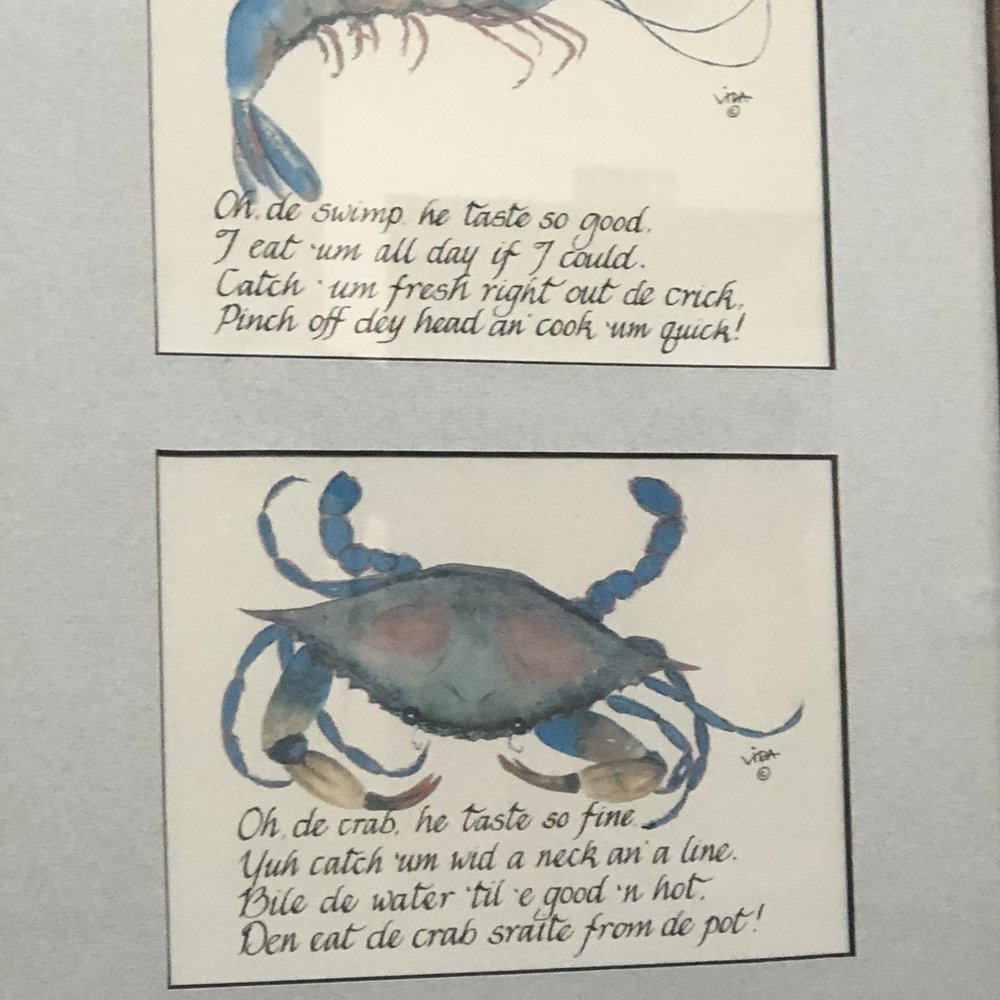 VIDA
©
Oh, de swimp, he taste so good,
I eat 'um all day if I could.
Catch 'um fresh right out de crick,
Pinch off dey head an' cook 'um quick!
VIDA
©
Oh, de crab, he taste so fine
Yuh catch 'um wid a neck an' a line.
Bile de water 'til 'e good 'n hot,
Den eat de crab sraite from de pot!